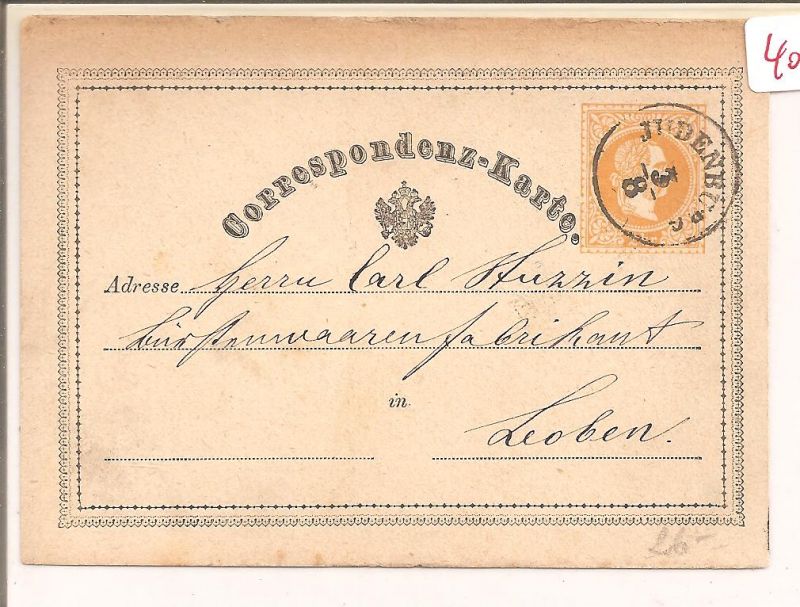 40
Correspondenz-Karte.
JUDENBURG
3
8
Adresse Herrn Carl Stuzzin
Bürstenwaarenfabrikant
in
Leoben.
26-